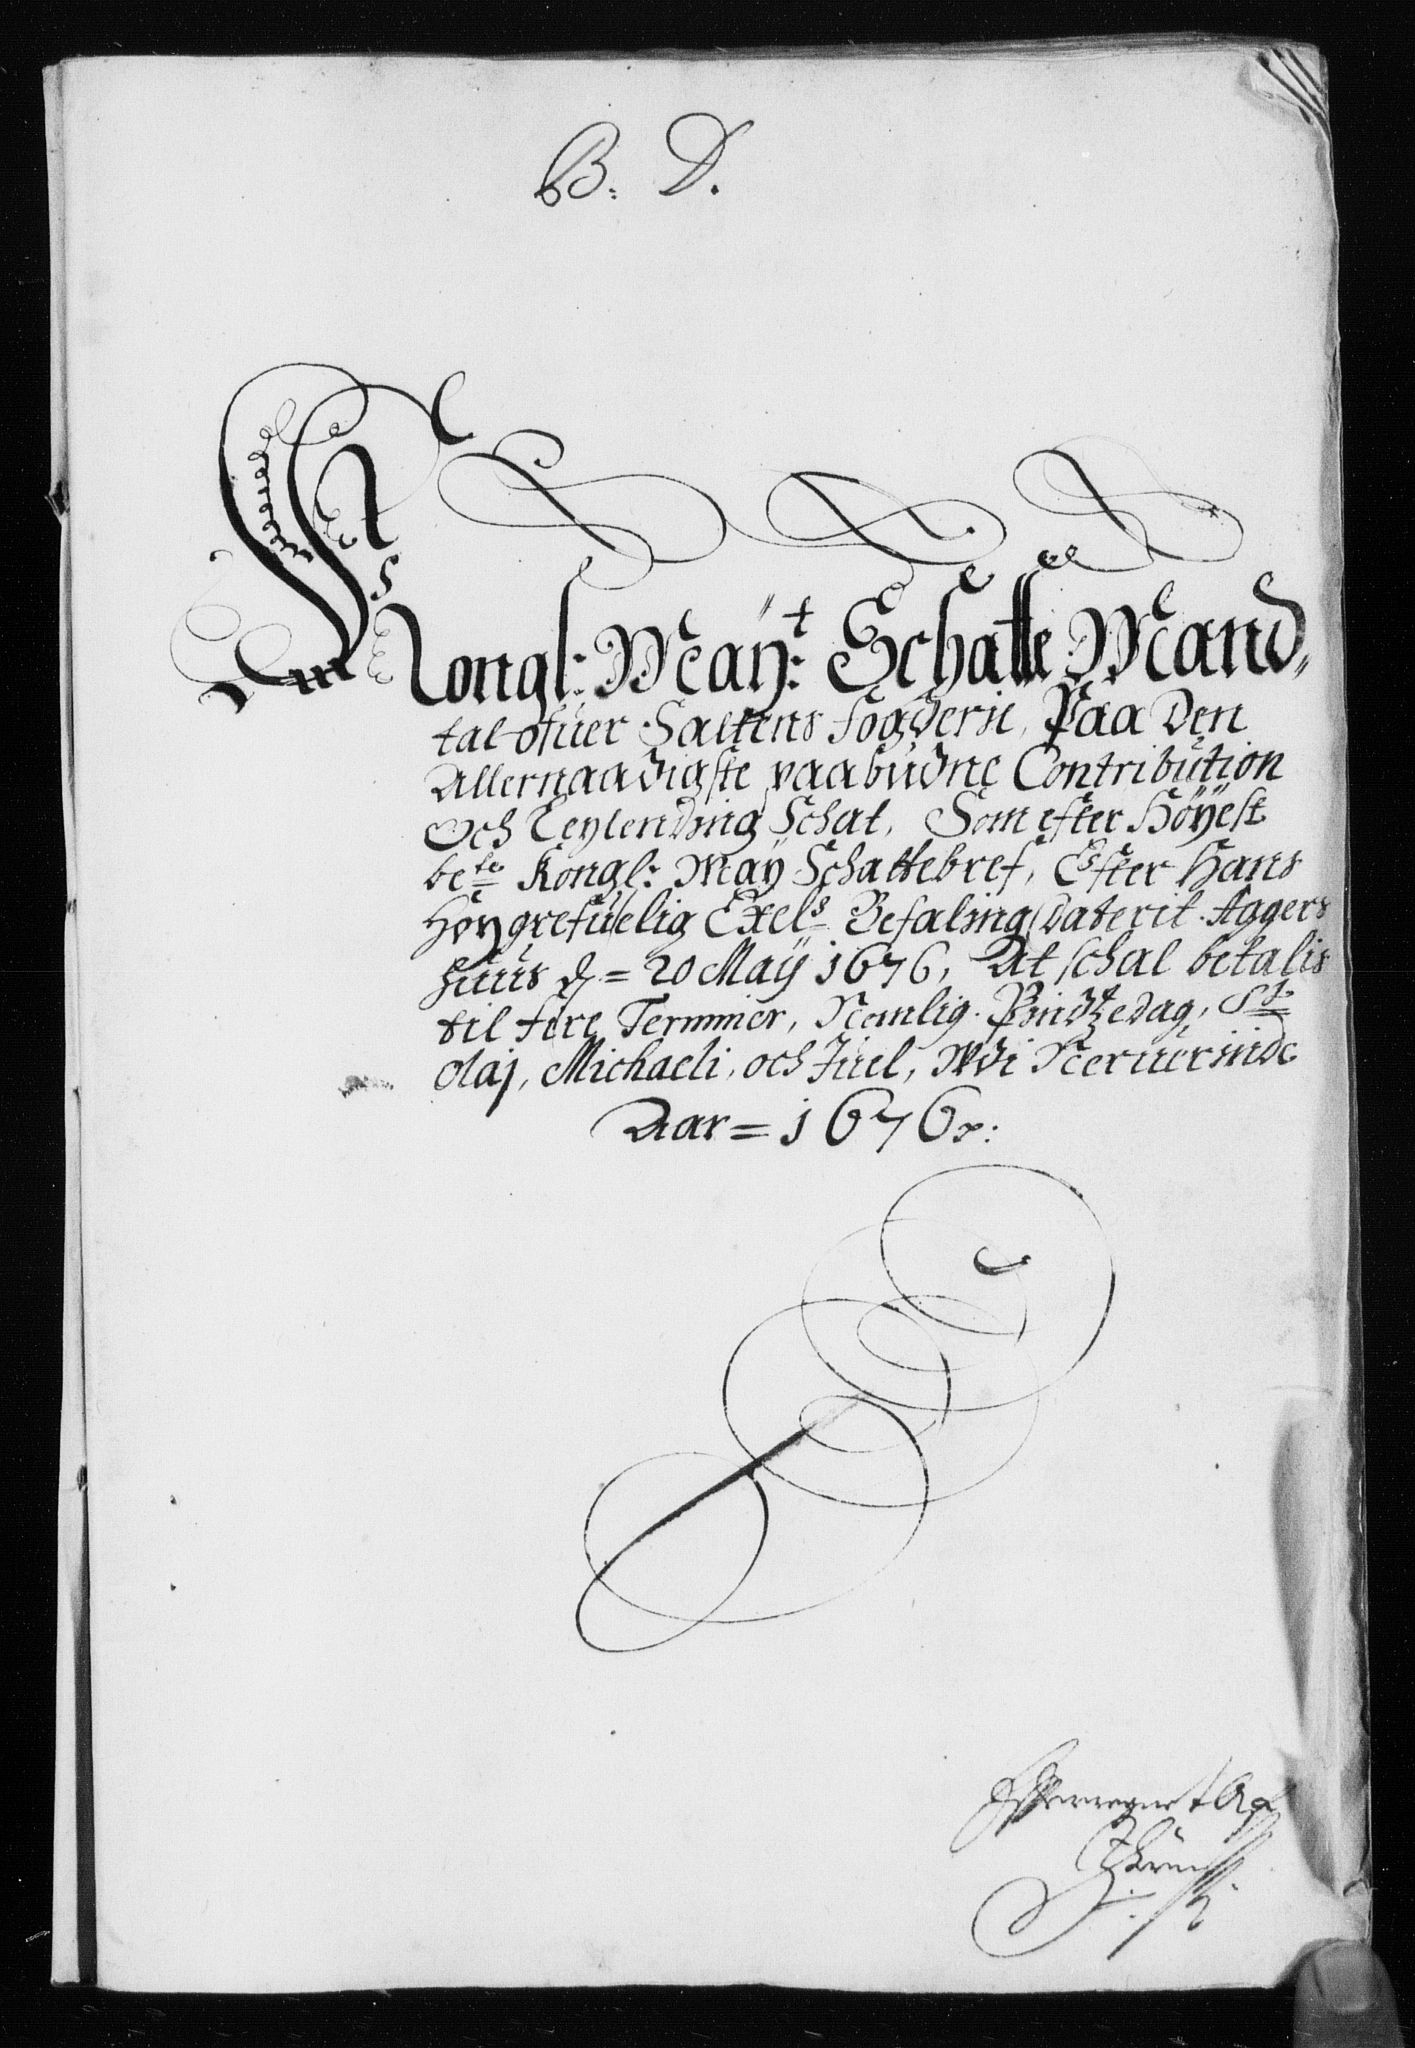 B: D.
Kongl: Maÿ:t Schatte Mand
tal ofuer Saltens fogderie, Paa Den
Allernaadigste paabudne Contribution
Och Leylending Schat, Som efter Höyest
be:te Kongl: Maÿ Schattebref, Efter Hans
Höygrefuelig Exel:s Befaling, daterit Aggers
huus d = 20 Maÿ 1676, At schal betalis
til fire Terminer, Nemlig Pindtzedag, St:
Olaj, Michaeli, och Juel, Udi Neruerinde
Aar = 1676